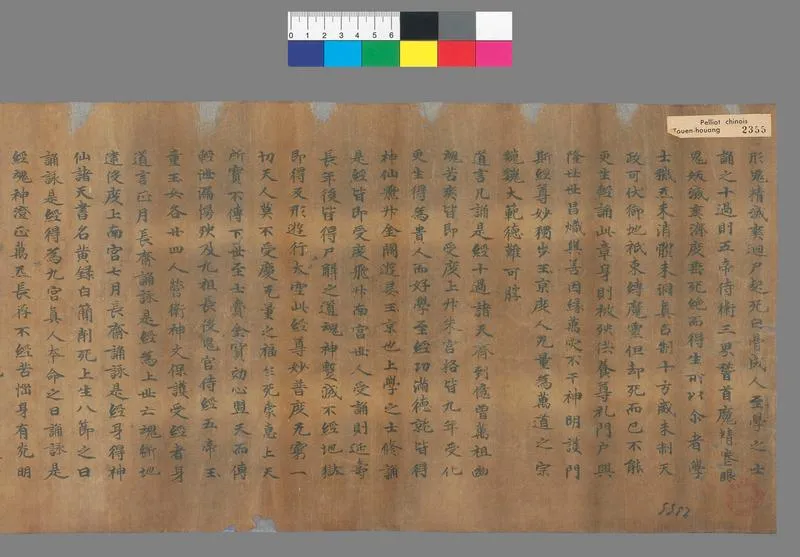 形鬼精滅爽迴尸起死白骨成人至學之士
誦之十過則五帝侍衛三界稽首魔精喪眼
鬼妖滅爽濟度垂死絕而得生所以尒者學
士穢炁未消體未洞真召制十方威未制天
政可伏御地祇束縛魔靈但却死而已不能
更生輕誦此章身則被殃供養尊礼門戶興
隆世世昌熾與善因緣萬灾不干神明護門
斯經尊妙獨步玉京度人无量為萬道之宗
巍巍大範德難可勝
道言凡誦是經十過諸天齊到億曾萬祖幽
魂苦爽皆即受度上升朱宮格皆九年受化
更生得為貴人而好學至經功滿德就皆得
神仙飛升金闕遊宴玉京也上學之士修誦
是經皆即受度飛升南宮世人受誦則延壽
長年後皆得尸解之道魂神蹔滅不經地獄
即得反形遊行太空此經尊妙普度无窮一
切天人莫不受慶无量之福生死蒙惠上天
所寶不傳下世至士賫金寶効心盟天而傳
輕泄漏慢殃及九祖長役鬼官侍經五帝玉
童玉女各廿四人營衛神文保護受經者身
道言正月長齋誦詠是經為上世亡魂斷地
逮役度上南宮七月長齋誦詠是經身得神
仙諸天書名黃籙白簡削死上生八節之日
誦詠是經得為九宮真人本命之日誦詠是
經魂神澄正萬炁長存不經苦惱身有光明
Pelliot chinois
Touen-houang 2355
0 1 2 3 4 5 6